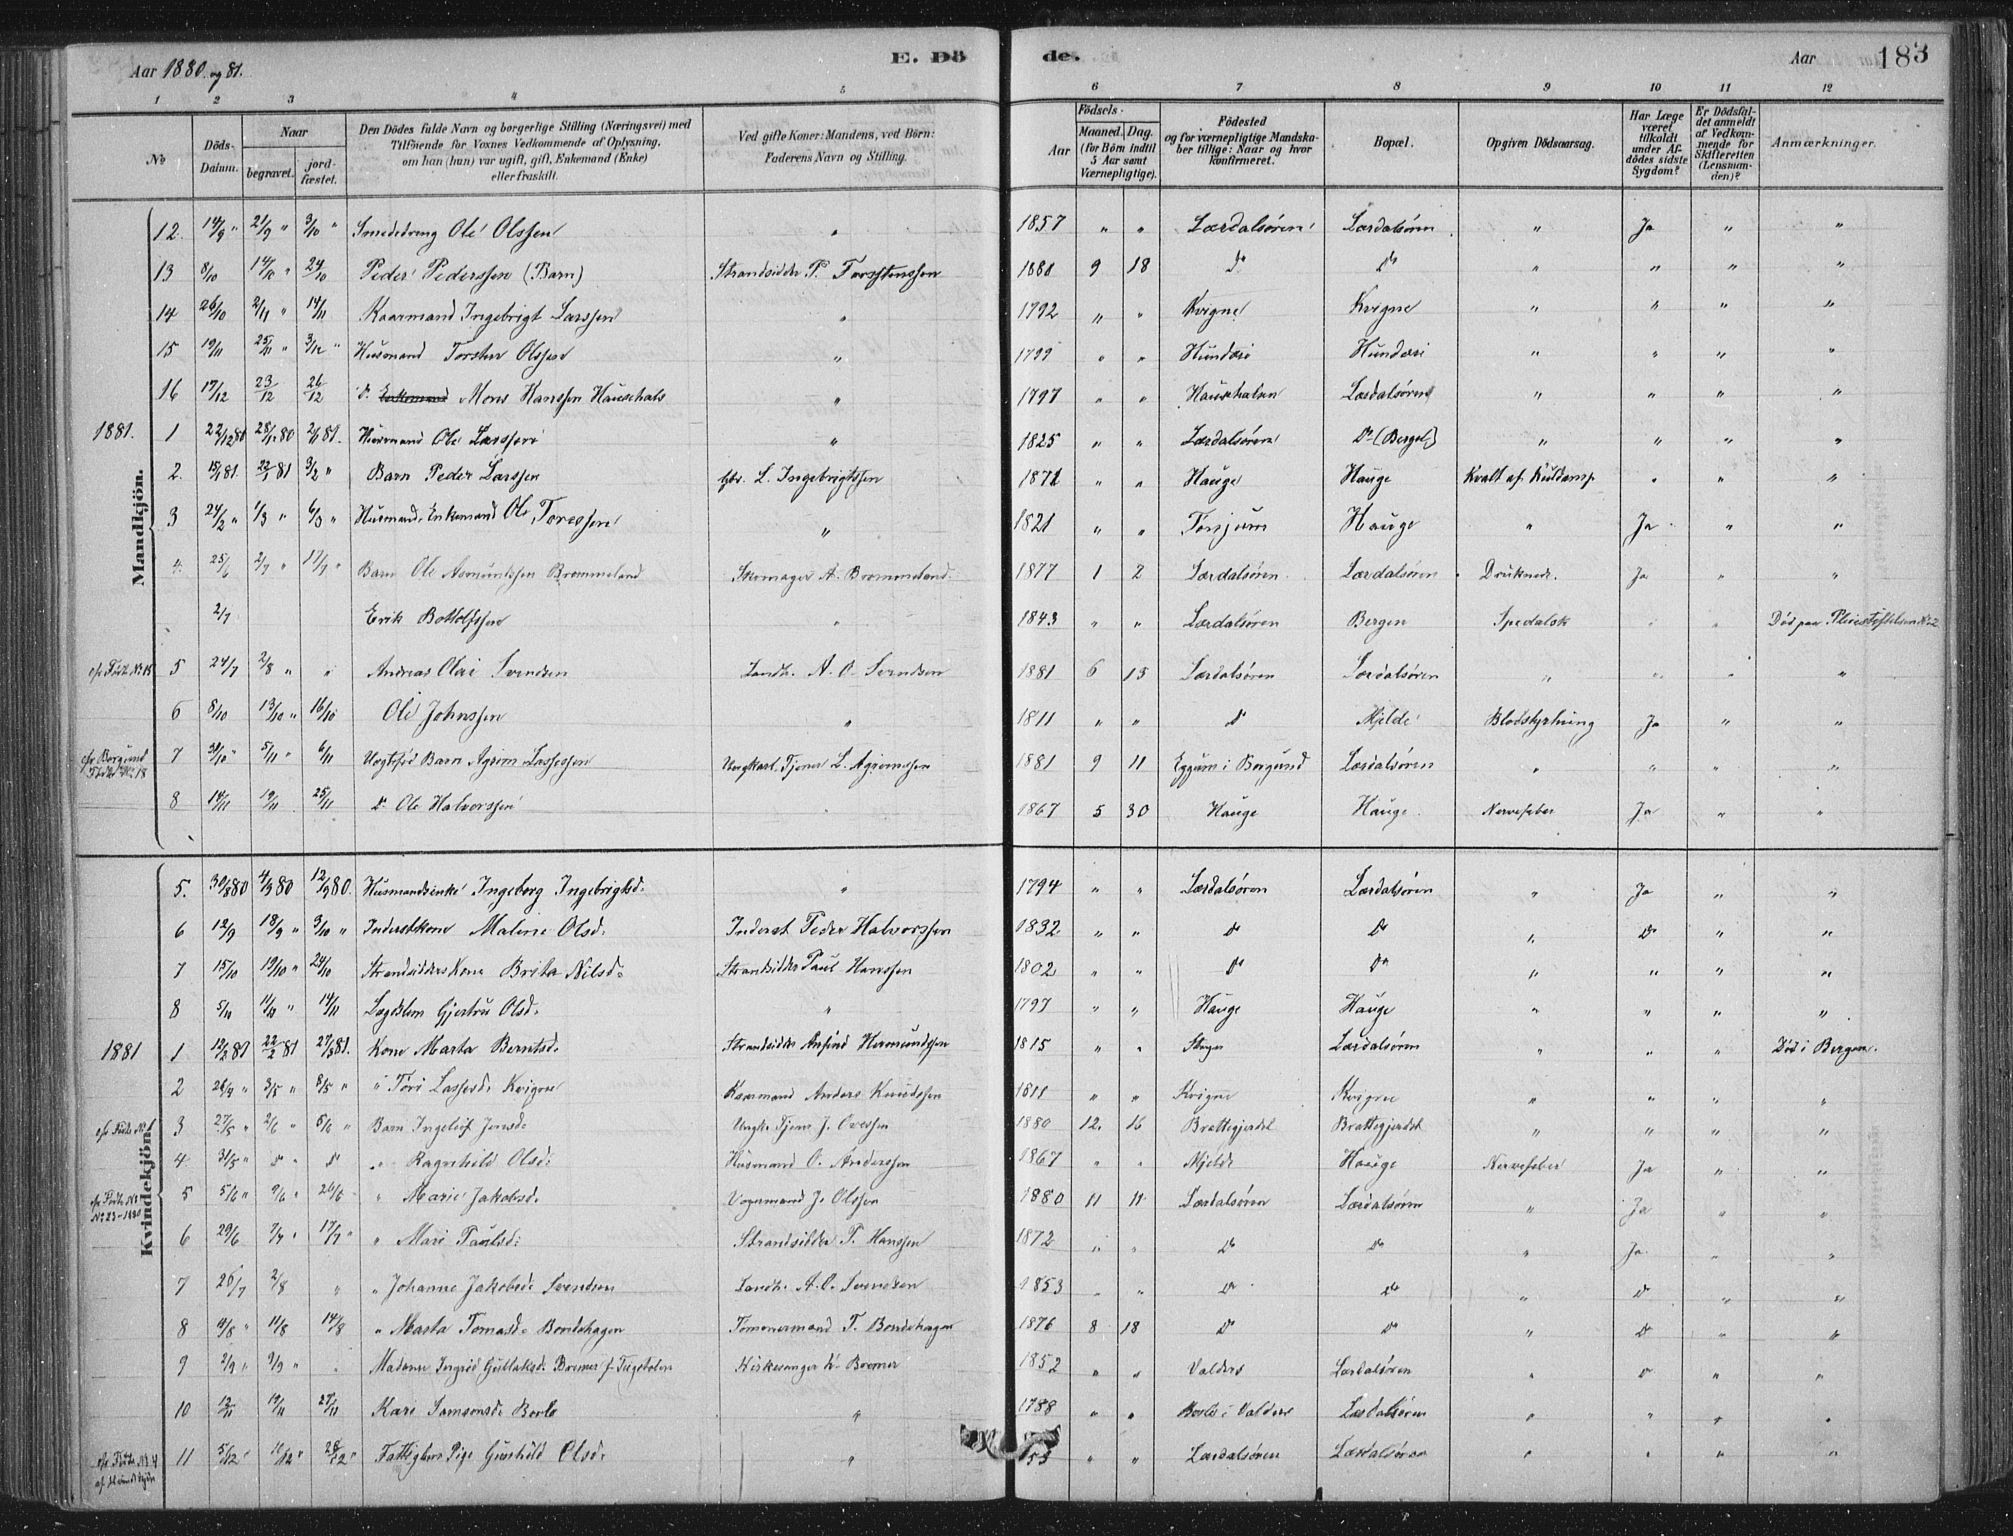 Aar 1880 og 81. E. Dö de. Aar 183
1 2 3 4 5 6 7 8 9 10 11 12
No Döds-Datum. Naar begravet. jord-fæstet. Den Dödes fulde Navn og borgerlige Stilling (Næringsvei) med Tilföiende for Voxnes Vedkommende af Oplysning, om han (hun) var ugift, gift, Enkemand (Enke) eller fraskilt. Ved gifte Koner: Mandens, ved Börn: Faderens Navn og Stilling. Aar Födsels- Maaned. Dag. (for Börn indtil 5 Aar samt Værnepligtige). Födested og for værnepligtige Mandskaber tillige: Naar og hvor konfirmeret. Bopæl. Opgiven Dödsaarsag. Har Læge været tilkaldt under Afdödes sidste Sygdom? Er Dödsfaldet anmeldt af Vedkommende for Skifteretten (Lensmanden)? Anmærkninger.
Mandkjön.
12. 14/9 " 21/9 " 3/10 " Smededreng Ole Olssen " 1857 " " Lærdalsøren Lærdalsøren " Ja " "
13 8/10 14/10 " 24/10 Peder Pederssen (Barn) Strandsidder P. Torstenssen 1880 9 18 Do Do " " " "
14 26/10 2/11 " 14/11 Kaarmand Ingebrigt Larssen " 1792 " " Kvigne Kvigne " " " "
15 19/11 25/11 " 3/12 " Husmand Torsten Olssen " 1799 " " Hunderi Hunderi " " " "
16 17/12 23/12 26/12 Do Enkemand Mons Hanssen " 1797 " " Lærdalsøren " " " "
1881. 1 22/12 80 28/12 80 2/1 81. Husmand Ole Larssen " 1825 " " Lærdalsøren Do " " " "
2. 15/1 81. 22/1 81 3/2 " Barn Peder Larssen Gbr. L. Ingebrigtssen 1871 " " Hauge Hauge Kvalt af Kuldamp " " "
3 24/2 " 1/3 " 6/3 " Husmand, Enkemand Ole Toressen " 1821 " " Tønjum Hauge " Ja " "
4. 25/6 2/7 " 17/7 " Barn Ole Asmundssen Brommeland Skomager A. Brommeland. 1877 1 2 Lærdalsøren Lærdalsøren Druknede. Ja " "
2/7 Erik Bottolfssen " 1843 " " Lærdalsøren Bergen Spedalsk " " Død paa Pleiestiftelsen No 2
cfr Fødte No 15 5 24/7 2/8 " " Andreas Olai Svendsen Landh. A. O. Svendsen 1881 6 15 Lærdalsøren Lærdalsøren " " " "
6 8/10 13/10 " 16/10 Ole Johnssen " 1811 " " Do Mjelde Blodstyrtning Ja " "
cfr Borgund Fødte No 18 7 30/10 " 5/11 " 6/11 Uægtefød Barn Agrim Lassessen Ungkarl Tjener L. Agrimssen 1881 9 11 Eggum i Borgund Lærdalsøren " " " "
8 14/11 19/11 25/11 Do Ole Halvorssen 1867 5 30 Hauge Hauge. Nervefeber Ja " "
Kvindekjön.
5. 30/8 80 4/9 80 12/9 80. Husmandsenke Ingeborg Ingebrigtsd. " 1794 " " Lærdalsøren Lærdalsøren " Ja " "
6 12/9 18/9 " 3/10 " Inderstkone Malene Olsd. Inderst Peder Halvorssen 1832 " " Do Do " Do " "
7 15/10 19/10 " 24/10 Strandsidders Kone Brita Nilsd. Strandsidder Paul Hanssen 1802 " " Do Do " " " "
8 5/11 11/11 " 14/11 Lægdslem Gjertru Olsd. " 1797 " " Hauge Hauge " " " "
1881 1 12/2 81 22/2 81 27/2 81. Kone Marta Berntsd. Strandsidder Anfind Hermundssen 1815 " " Lærdalsøren " " " Død i Bergen.
2 26/4 " 3/5 " 8/5 " " Tøri Lassesd. Kvigne Kaarmand Anders Knudssen 1811 " " Kvigne Kvigne " " " "
cfr Fødte No 1 3 27/5 " 2/6 " 5/6 " Barn Ingelief Jensd. Ungk. Tjener J. Ovessen 1880 12. 16 Brattegjerdet Brattegjerdet " " " "
4 31/5 " Do " Do " Ragnhild Olsd. Husmand O. Anderssen 1867 " " Mjelde Hauge Nervefeber Ja " "
cfr Fødte No 23-1880 5 5/6 " 9/6 " 26/6 " Marie Jakobsd. Vognmand J. Olssen 1880 11 11 Lærdalsøren Lærdalsøren " Ja " "
6 29/6 7/7 " 17/7 " " Mari Paulsd. Strandsidder P. Hanssen 1872 " " Do Do " Ja " "
7 26/7 2/8 " " Johanne Jakobsd. Svendsen Landh. A. O. Svendsen 1853 " " Do Do " Do " "
8 9/8 " 11/8 14/8 " Marta Tomasd. Bordehagen Tømmermand T. Bordehagen 1876 8 18 Do Do " Do " "
9 2/9 " 9/9 " " Madame Ingrid Gullaksd. Bremer f. Kirkesanger Bremer 1852 " " Valders Lærdalsøren " Do " "
10 12/11 19/11 27/11 Kari Samsonsd. Borlo " 1788 " " Borlo i Valders Lærdalsøren " " " "
cfr Fødte No 4 af Mandkjøn 11 5/12 " 11/12 " 28/12 " Fattiglem Pige Gunhild Olsd. " 53 " " Lærdalsøren Lærdalsøren " " " "